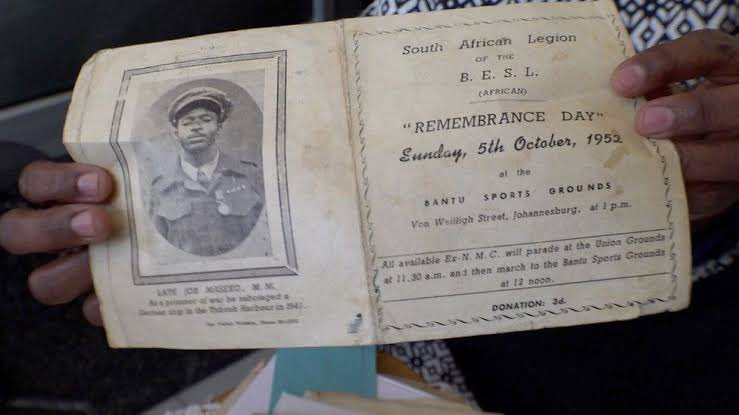 LATE JOB MASEKO, M. M.
As a prisoner of war he sabotaged a
German ship in the Tobruk Harbour in 1942.
South African Legion
OF THE
B. E. S. L.
(AFRICAN)
"REMEMBRANCE DAY"
Sunday, 5th October, 1952
at the
BANTU SPORTS GROUNDS
Von Weiligh Street, Johannesburg, at 1 p.m.
All available Ex-N. M. C. will parade at the Union Grounds
at 11.30 a.m. and then march to the Bantu Sports Grounds
at 12 noon.
DONATION: 3d.